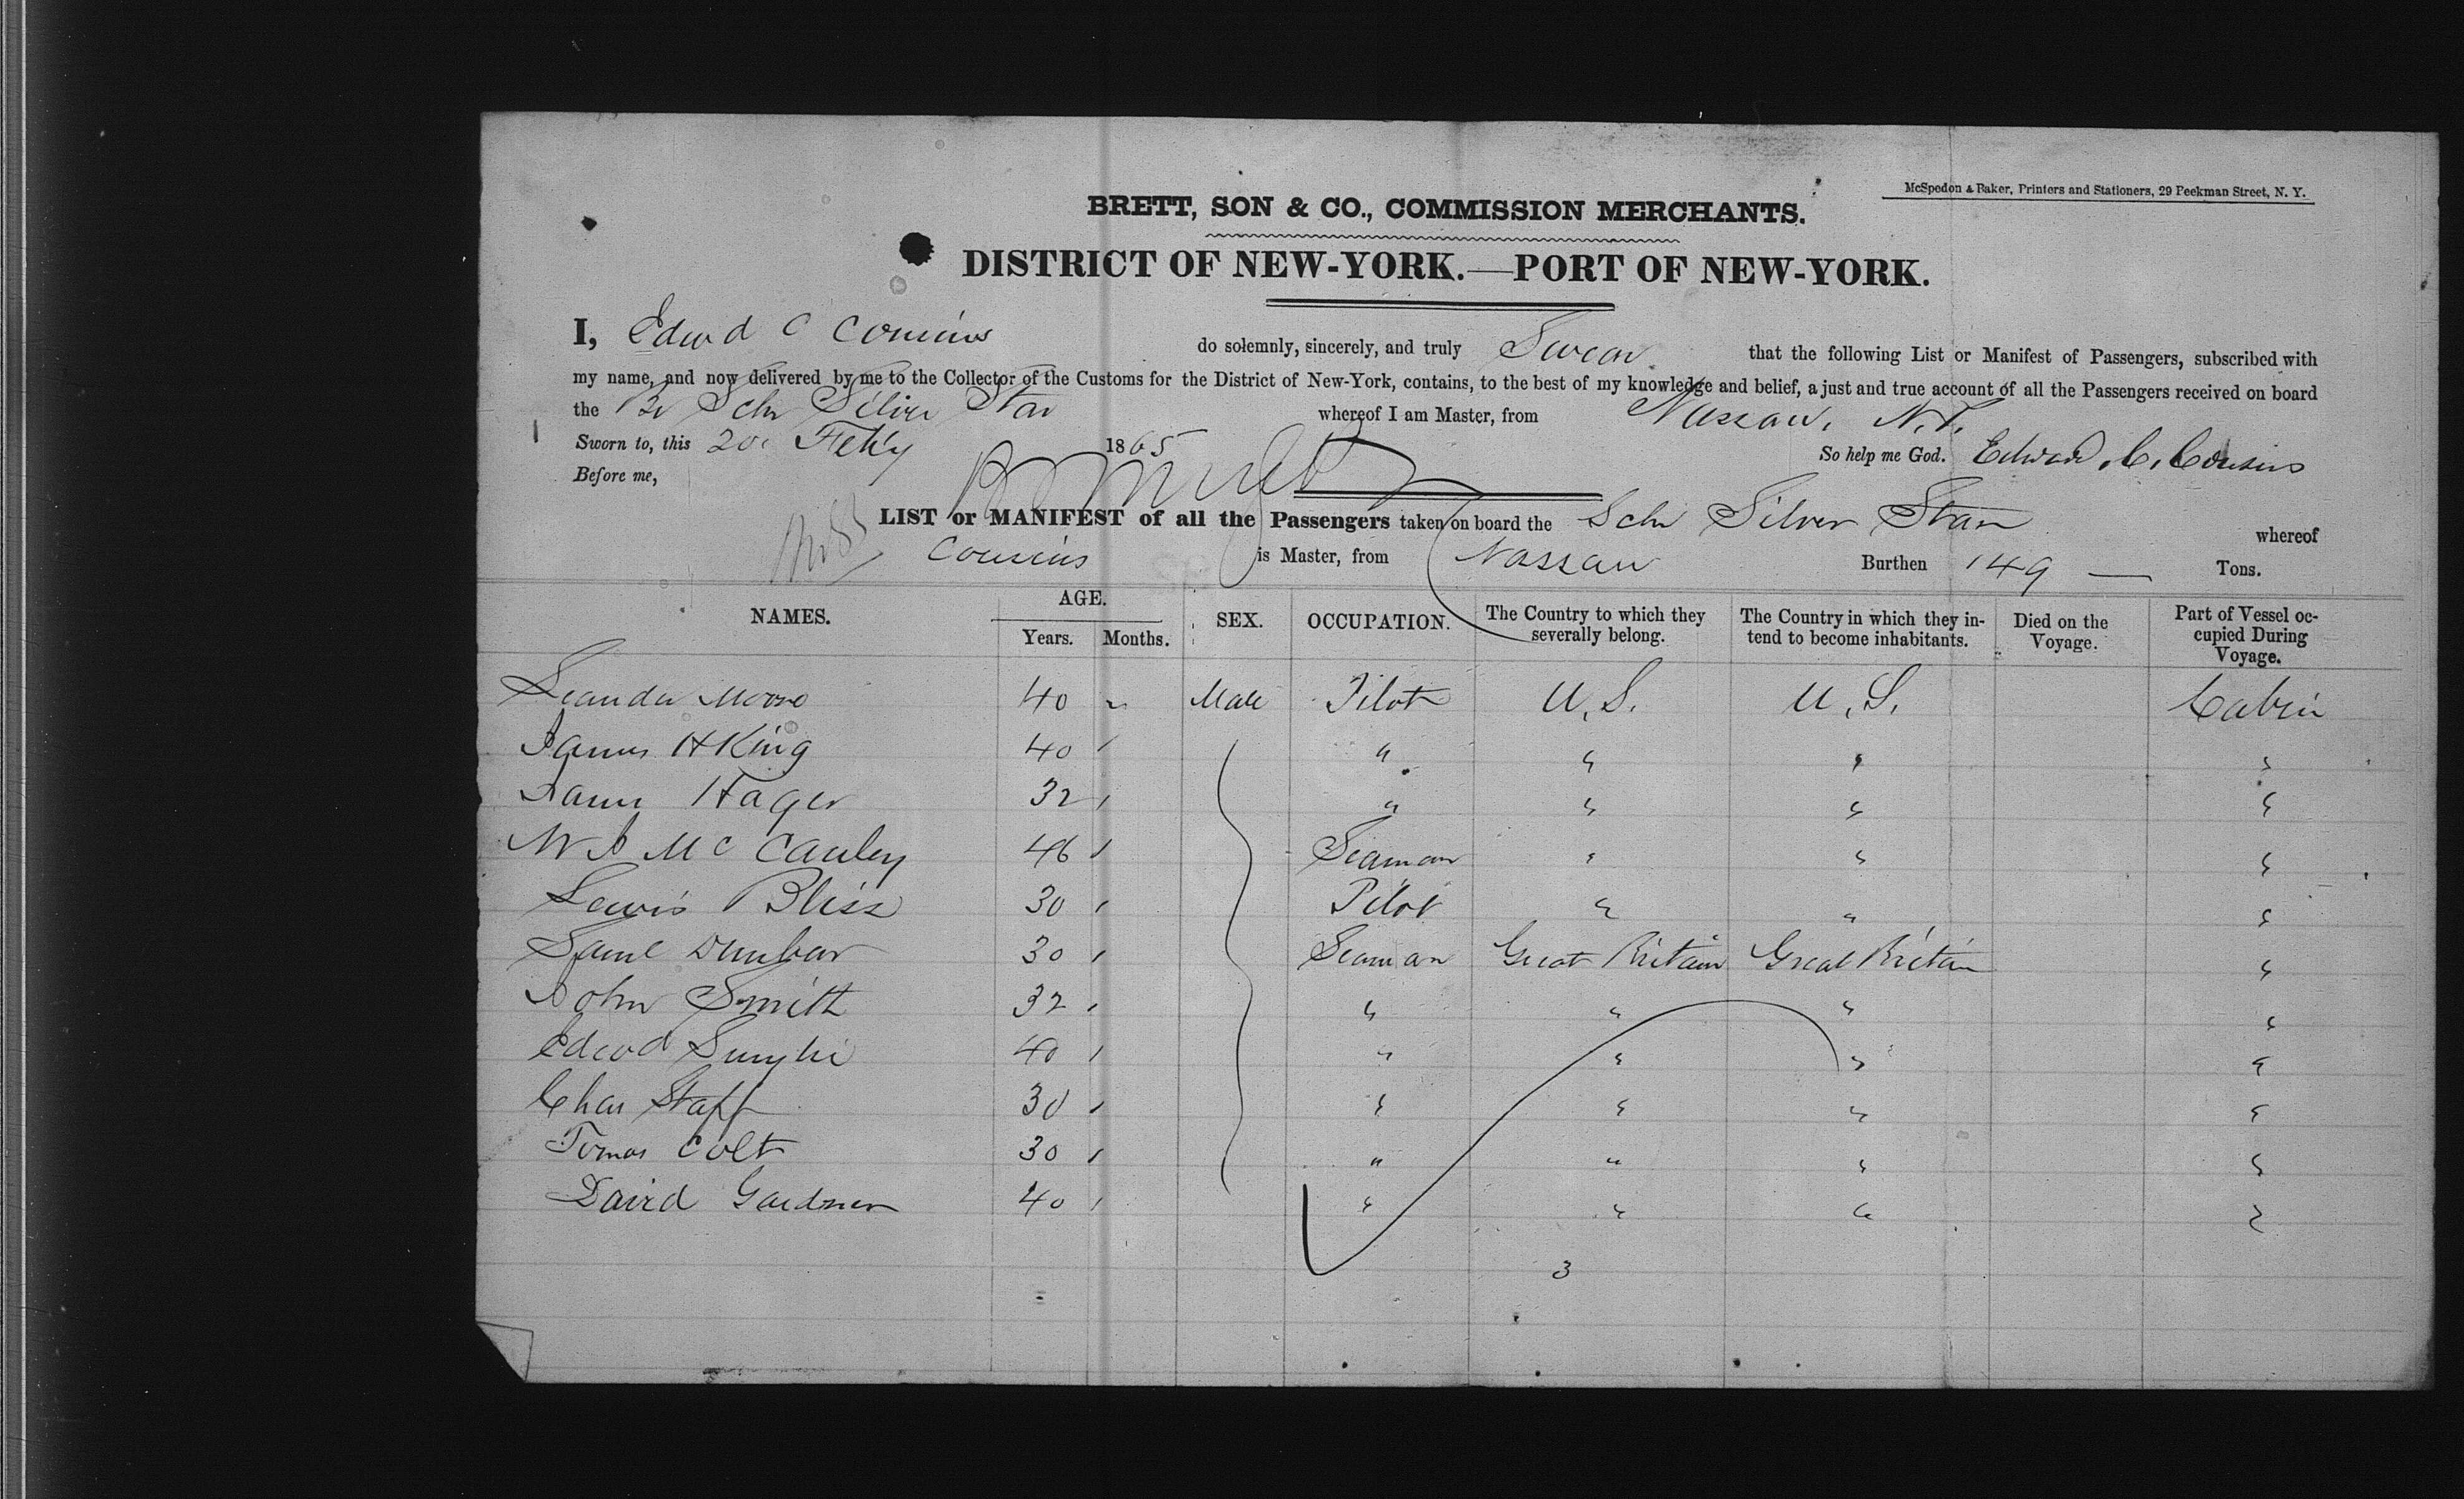 McSpedon & Baker, Printers and Stationers, 29 Peekman Street, N. Y.
BRETT, SON & CO., COMMISSION MERCHANTS.
DISTRICT OF NEW-YORK.—PORT OF NEW-YORK.
I, Edwd C Cousins do solemnly, sincerely, and truly Swear that the following List or Manifest of Passengers, subscribed with
my name, and now delivered by me to the Collector of the Customs for the District of New-York, contains, to the best of my knowledge and belief, a just and true account of all the Passengers received on board
the Br Schr Silver Star whereof I am Master, from Nassau, N.P.
Sworn to, this 20. Feb'y 1865 So help me God. Edward C. Cousins
Before me,
LIST or MANIFEST of all the Passengers taken on board the Schr Silver Star whereof
Cousins is Master, from Nassau Burthen 149 — Tons.
NAMES. AGE. Years. Months. SEX. OCCUPATION. The Country to which they severally belong. The Country in which they intend to become inhabitants. Died on the Voyage. Part of Vessel occupied During Voyage.
Leander Moore 40 " Male Pilot U.S. U.S. Cabin
James H King 40 " " " " "
James Hager 32 " " " " "
W J McCauley 46 " Seaman " " "
Lewis Bliss 30 " Pilot " " "
Saml Dunbar 30 " Seaman Great Britain Great Britain "
John Smith 32 " " " " "
Edwd 40 " " " " "
Chas Staff 30 " " " " "
Tomas Colt 30 " " " " "
David Gardner 40 " " " " "
3